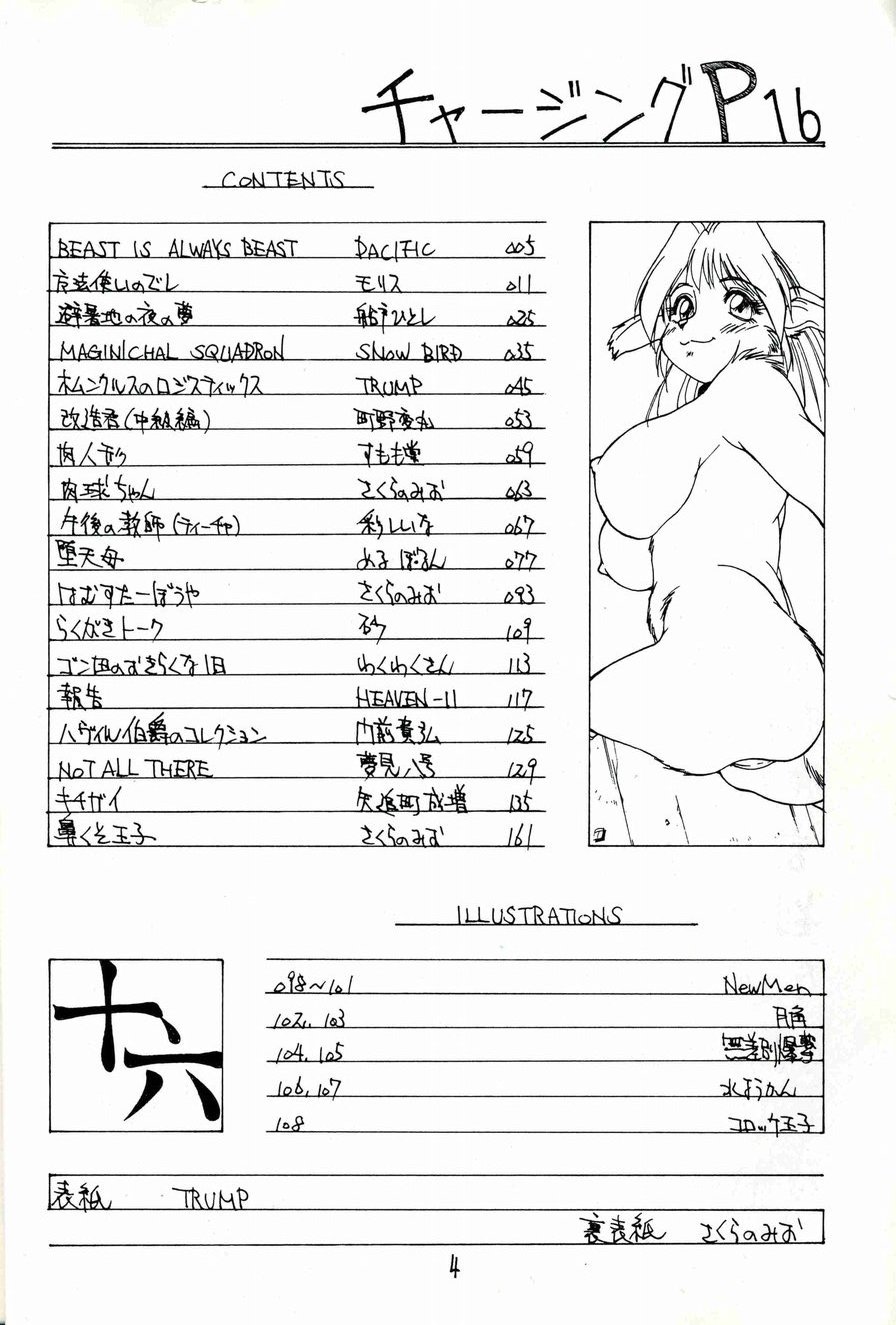 チャージングP16
CONTENTS
BEAST IS ALWAYS BEAST PACIFIC 005
魔法使いのでし モリス 011
避暑地の夜の夢 船戸ひとし 025
MAGINICHAL SQUADRON SNOW BIRD 035
ホムンクルスのロジスティックス TRUMP 045
改造君(中級編) 町野変丸 053
肉人形 すもも堂 059
肉球ちゃん さくらのみお 063
午後の教師(ティーチャ) 彩しいな 067
堕天母 める ぼるん 077
はむすたーぼうや さくらのみお 093
らくがきトーク 砂 109
ゴン田のおきらくな1日 わくわくさん 113
報告 HEAVEN-11 117
ハヴィル伯爵のコレクション 門前貴弘 125
NOT ALL THERE 夢見八号 129
キチガイ 矢追町成増 135
鼻くそ玉子 さくらのみお 161
ILLUSTRATIONS
十六
098~101 NewMen
102, 103 月角
104, 105 無差別爆撃
106, 107 水ようかん
108 コロッケ玉子
表紙 TRUMP
裏表紙 さくらのみお
4